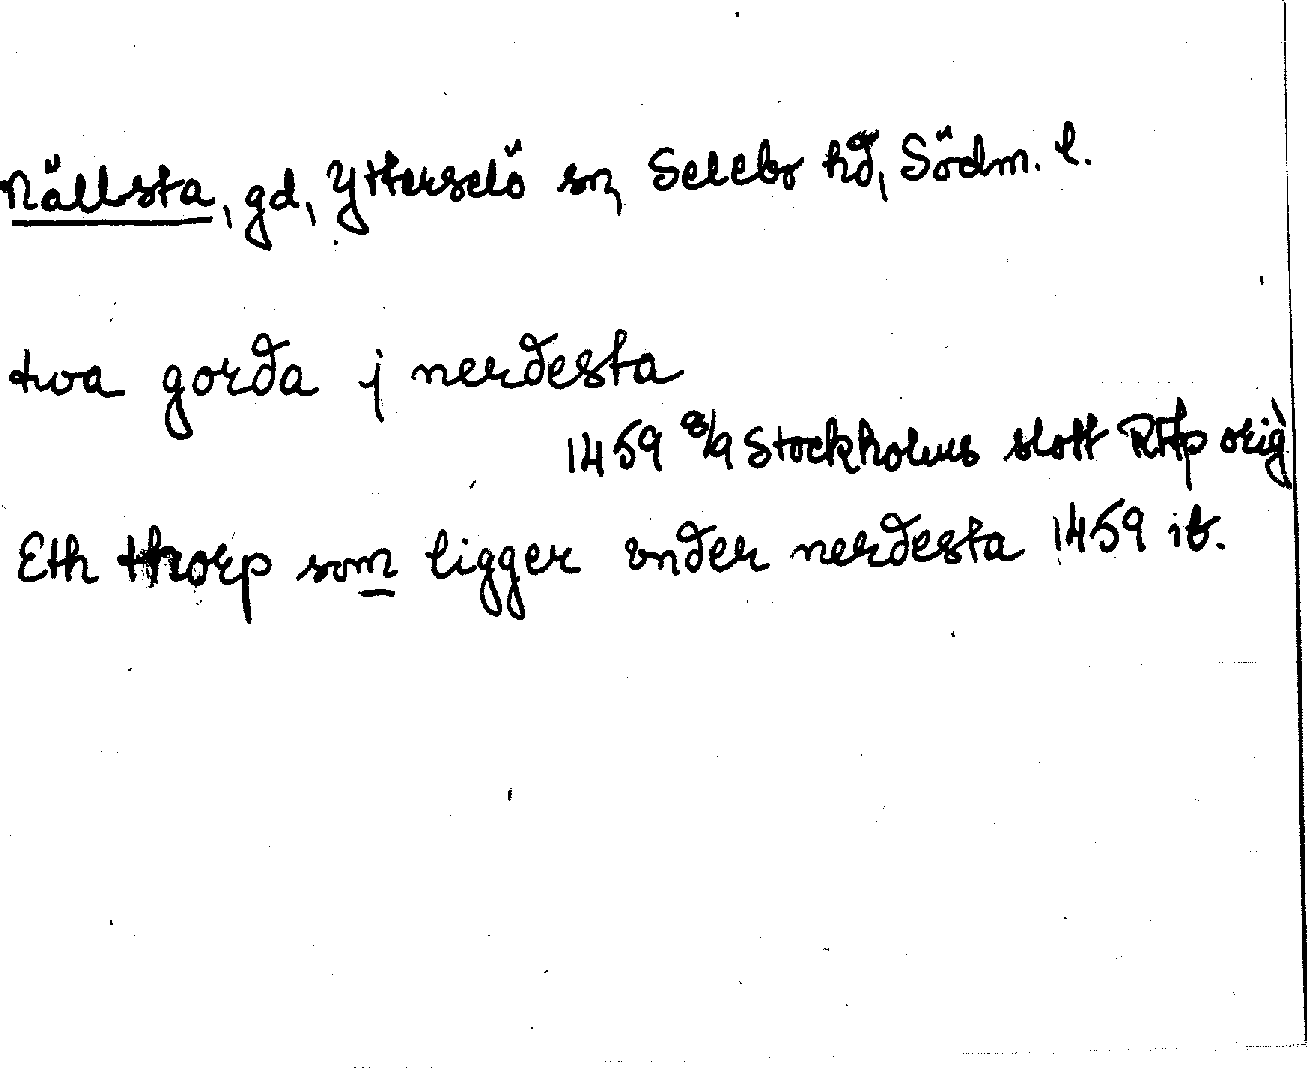 Nällsta, gd, Ytterselö sn, Selebo hd, Södm. l.
twa gorda j nerdesta
1459 8/9 Stockholms slott RAp orig
Eth thorp som ligger vnder nerdesta 1459 ib.